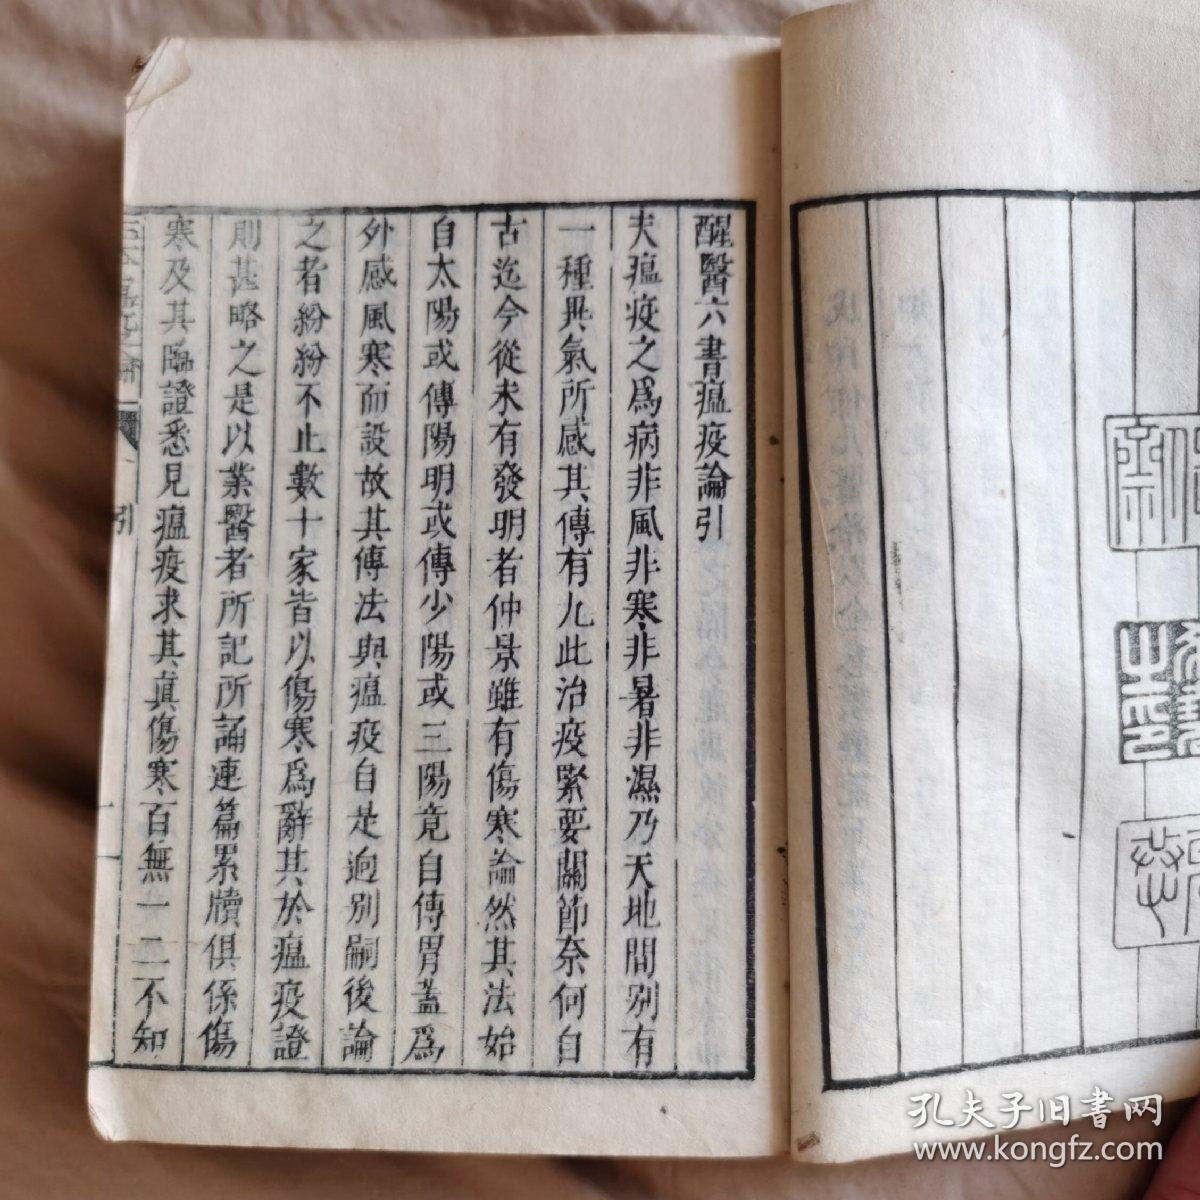 醒醫六書瘟疫論引
夫瘟疫之爲病非風非寒非暑非濕乃天地間别有
一種異氣所感其傳有九此治疫緊要關節奈何自
古迄今從未有發明者仲景雖有傷寒論然其法始
自太陽或傳陽明或傳少陽或三陽竟自傳胃蓋爲
外感風寒而設故其傳法與瘟疫自是逈別嗣後論
之者紛紛不止數十家皆以傷寒爲辭其於瘟疫證
則甚略之是以業醫者所記所誦連篇累牘俱係傷
寒及其臨證悉見瘟疫求其眞傷寒百無一二不知
引
孔夫子旧书网
www.kongfz.com